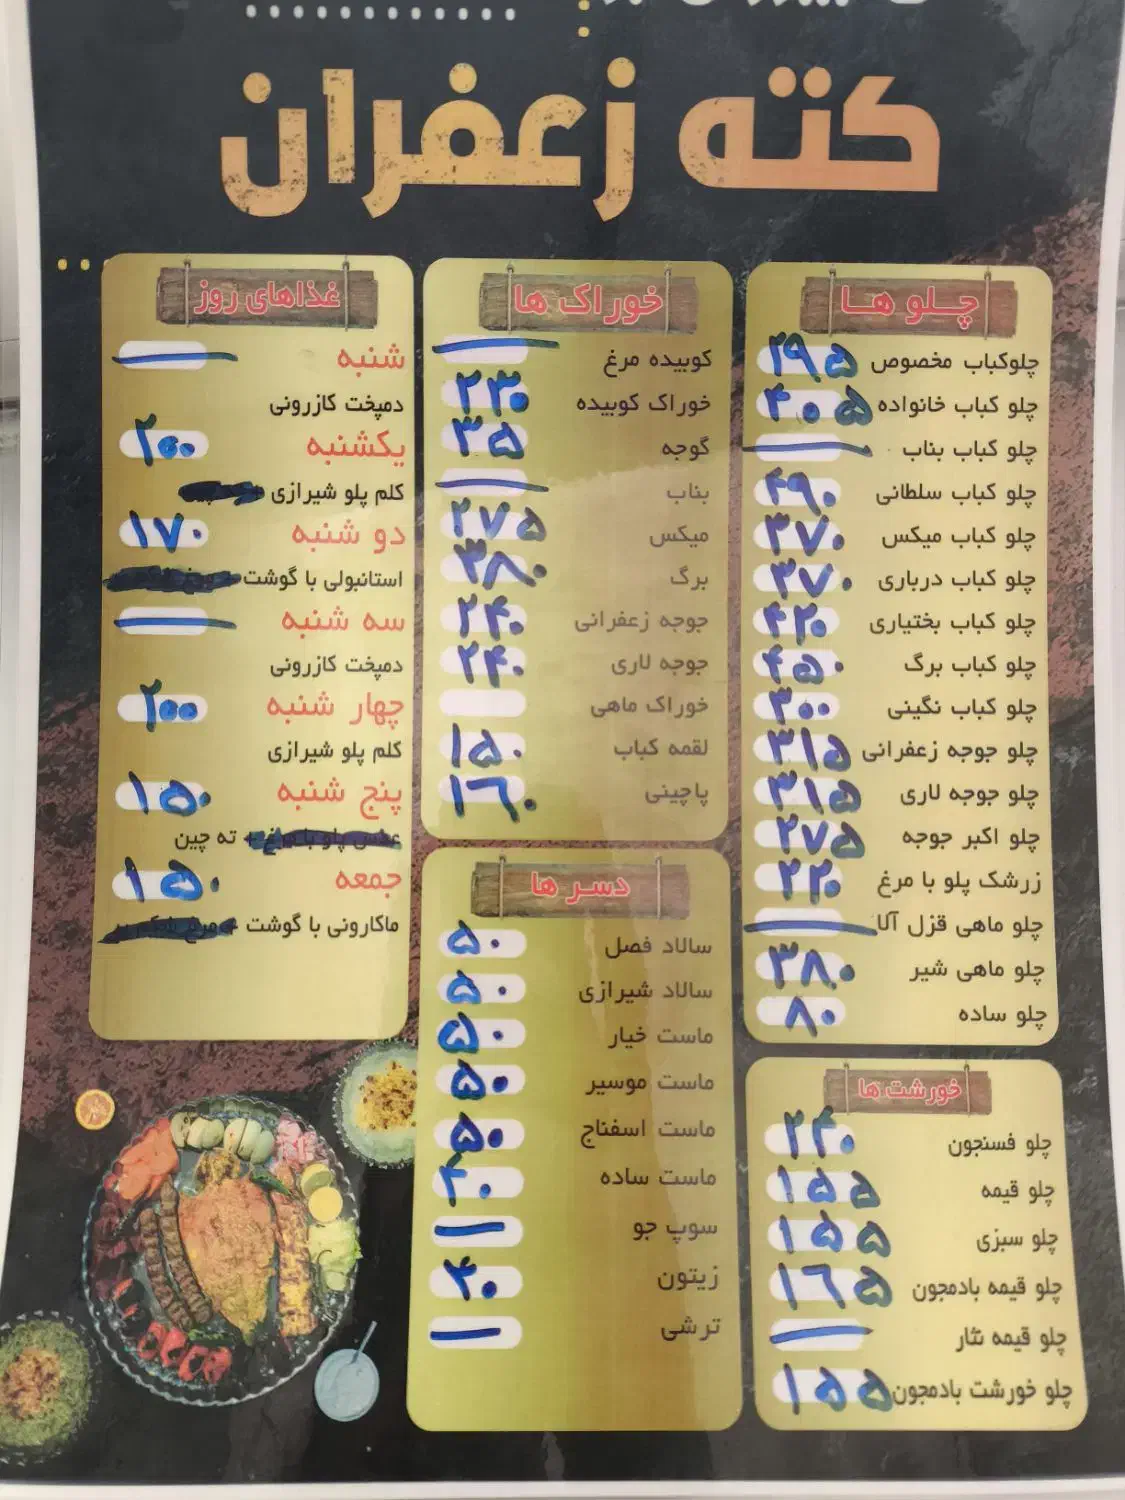 کته زعفران
چلو ها
چلوکباب مخصوص ۲۹۵
چلو کباب خانواده ۴۰۵
چلو کباب بناب
چلو کباب سلطانی ۴۹۰
چلو کباب میکس ۳۷۰
چلو کباب درباری ۳۷۰
چلو کباب بختیاری ۴۲۰
چلو کباب برگ ۴۵۰
چلو کباب نگینی ۳۰۰
چلو جوجه زعفرانی ۳۱۵
چلو جوجه لاری ۳۱۵
چلو اکبر جوجه ۲۷۵
زرشک پلو با مرغ ۲۲۰
چلو ماهی قزل آلا
چلو ماهی شیر ۳۸۰
چلو ساده ۸۰
خورشت ها
چلو فسنجون ۲۴۰
چلو قیمه ۱۵۵
چلو سبزی ۱۵۵
چلو قیمه بادمجون ۱۶۵
چلو قیمه نثار
چلو خورشت بادمجون ۱۵۵
خوراک ها
کوبیده مرغ
خوراک کوبیده ۲۳۰
گوجه ۳۵
بناب
میکس ۲۷۵
برگ ۳۸۰
جوجه زعفرانی ۲۴۰
جوجه لاری ۲۴۰
خوراک ماهی
لقمه کباب ۱۵۰
پاچینی ۱۶۰
دسر ها
سالاد فصل ۵۰
سالاد شیرازی ۵۰
ماست خیار ۵۰
ماست موسیر ۵۰
ماست اسفناج ۵۰
ماست ساده ۲۰
سوپ جو
زیتون ۴۰
ترشی
غذاهای روز
شنبه
دمپخت کازرونی
یکشنبه ۲۰۰
کلم پلو شیرازی
دو شنبه ۱۷۰
استانبولی با گوشت
سه شنبه
دمپخت کازرونی
چهار شنبه ۲۰۰
کلم پلو شیرازی
پنج شنبه ۱۵۰
عدس پلو با مرغ + ته چین
جمعه ۱۵۰
ماکارونی با گوشت